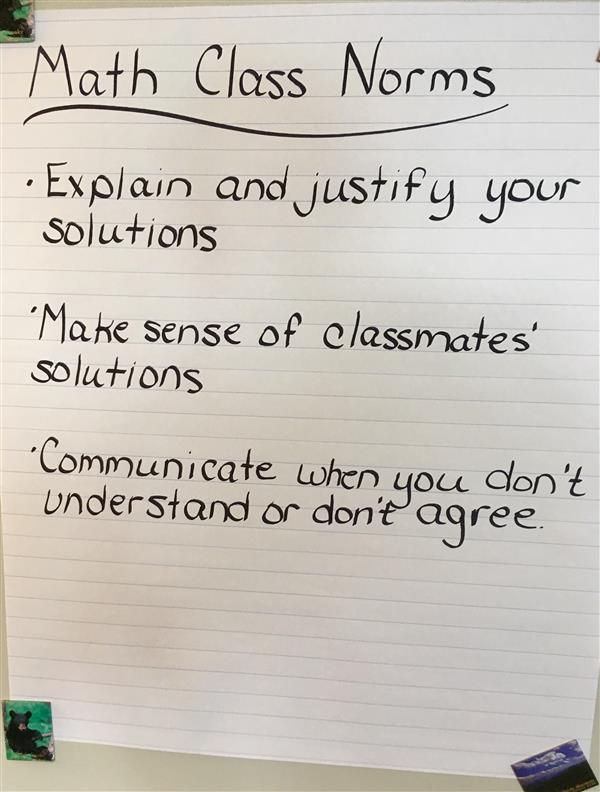 Math Class Norms
· Explain and justify your
solutions
· Make sense of classmates'
solutions
· Communicate when you don't
understand or don't agree.